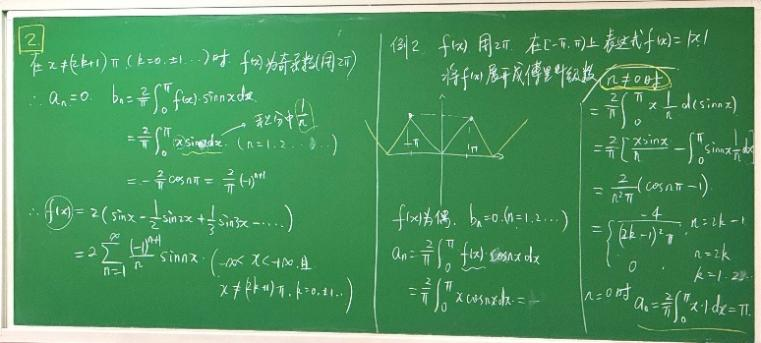 2
在 x≠(2k+1)π (k=0,±1…)时 f(x)为奇函数(周2π)
∴ aₙ=0. bₙ=2/π ∫₀^π f(x)·sinnxdx
=2/π ∫₀^π x sinnxdx. (n=1,2…)
积分中 1/n
=-2/n cosnπ = 2/n (-1)ⁿ⁺¹
∴ f(x)=2(sinx-1/2 sin2x+1/3 sin3x-…)
=2 ∑_{n=1}^∞ (-1)ⁿ⁺¹/n sinnx. (-∞<x<+∞,且
x≠(2k+1)π, k=0,±1…)
例2. f(x) 周2π. 在[-π,π)上 表达式f(x)=|x|
将f(x)展开成傅里叶级数
-π π
f(x)为偶. bₙ=0.(n=1,2…)
aₙ=2/π ∫₀^π f(x)·cosnxdx
=2/π ∫₀^π x cosnxdx=
n≠0时
=2/π ∫₀^π x 1/n d(sinnx)
=2/π [xsinx/n - ∫₀^π sinnx 1/n dx]
=2/n²π (cosnπ-1)
={ -4/(2k-1)²π , n=2k-1
0 , n=2k
k=1,2…
n=0时 aₙ=2/π ∫₀^π x·1dx=π.